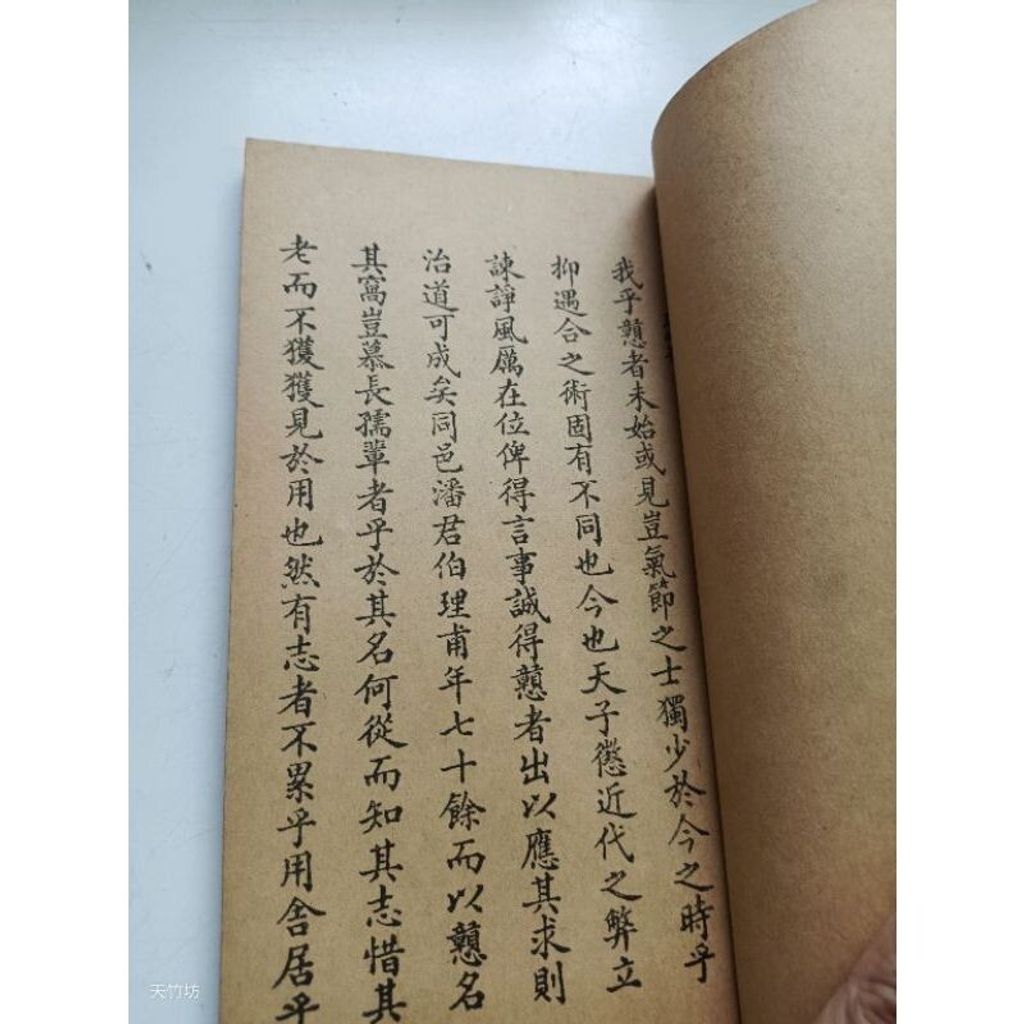 我乎戇者未始或見豈氣節之士獨少於今之時乎
抑遇合之術固有不同也今也天子懲近代之弊立
諫諍風厲在位俾得言事誠得戇者出以應其求則
治道可成矣同邑潘君伯理甫年七十餘而以戇名
其窩豈慕長孺輩者乎於其名何從而知其志惜其
老而不獲獲見於用也然有志者不累乎用舍居乎
天竹坊